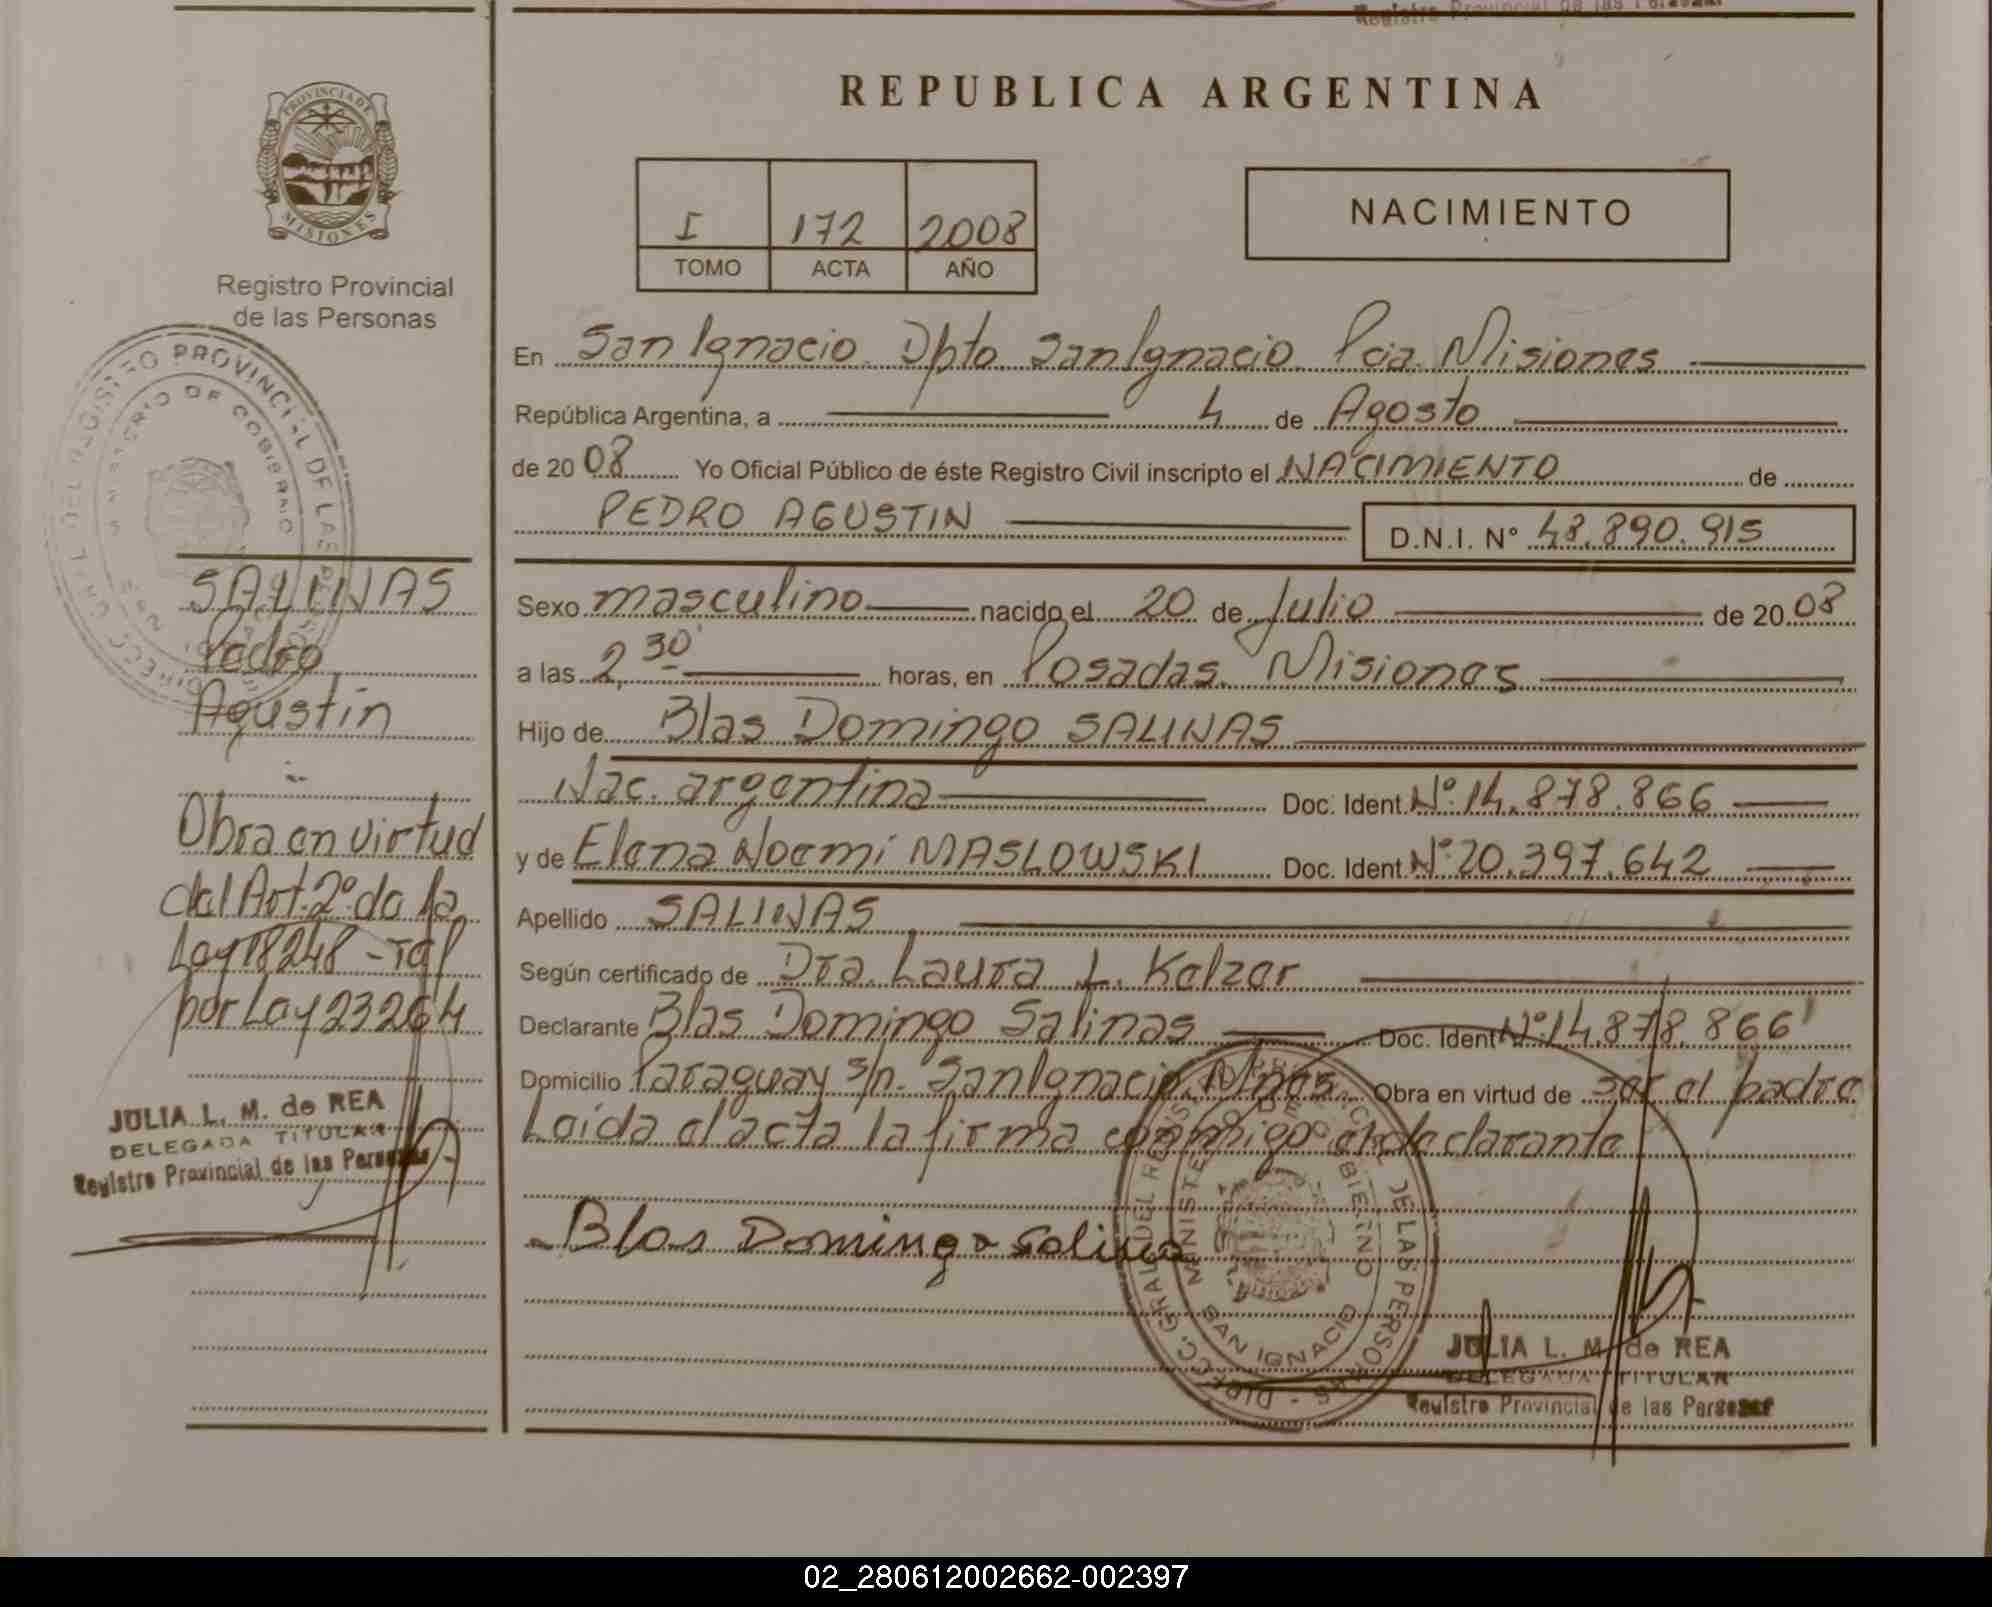 REPUBLICA ARGENTINA
PROVINCIA DE
MISIONES
Registro Provincial
de las Personas
I 172 2008
TOMO ACTA AÑO
NACIMIENTO
En San Ignacio Dpto San Ignacio Pcia. Misiones
República Argentina, a 4 de Agosto
de 2008 Yo Oficial Público de éste Registro Civil inscripto el NACIMIENTO de
PEDRO AGUSTIN D.N.I. N° 48.890.915
Sexo masculino nacido el 20 de Julio de 2008
a las 2,30 horas, en Posadas. Misiones
Hijo de Blas Domingo SALINAS
Nac. argentina Doc. Ident. N° 14.878.866
y de Elena Noemí MASLOWSKI Doc. Ident. N° 20.397.642
Apellido SALINAS
Según certificado de Dra. Laura L. Kelzer
Declarante Blas Domingo Salinas Doc. Ident N° 14.878.866
Domicilio Paraguay s/n. San Ignacio Mnes. Obra en virtud de ser el padre
Leída el acta la firma conmigo el declarante
Blas Domingo Salinas
DIRECC. GRAL. DEL REGISTRO PROVINCIAL DE LAS PERSONAS
MINISTERIO DE GOBIERNO
SAN IGNACIO
JULIA L. M. de REA
DELEGADA TITULAR
Registro Provincial de las Personas
SALINAS
Pedro
Agustín
Obra en virtud
del Art. 2° de la
Ley 18248 - ref
por Ley 23264
JULIA L. M. de REA
DELEGADA TITULAR
Registro Provincial de las Personas
02_280612002662-002397